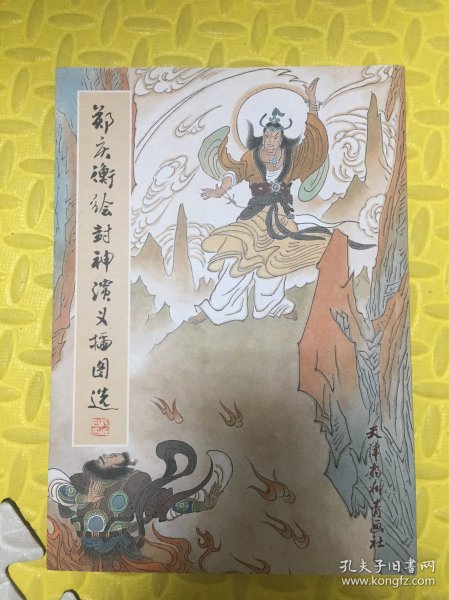 郑庆衡绘封神演义插图选
天津杨柳青画社
孔夫子旧书网
www.kongfz.com